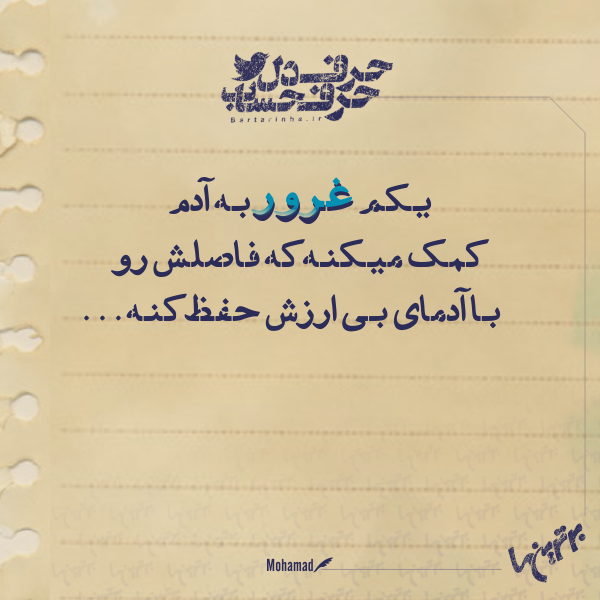 حرف دل
حرف حساب
Bartarinha.ir
یکم غرور به آدم
کمک میکنه که فاصلش رو
با آدمای بی ارزش حفظ کنه...
Mohamad
برترین‌ها